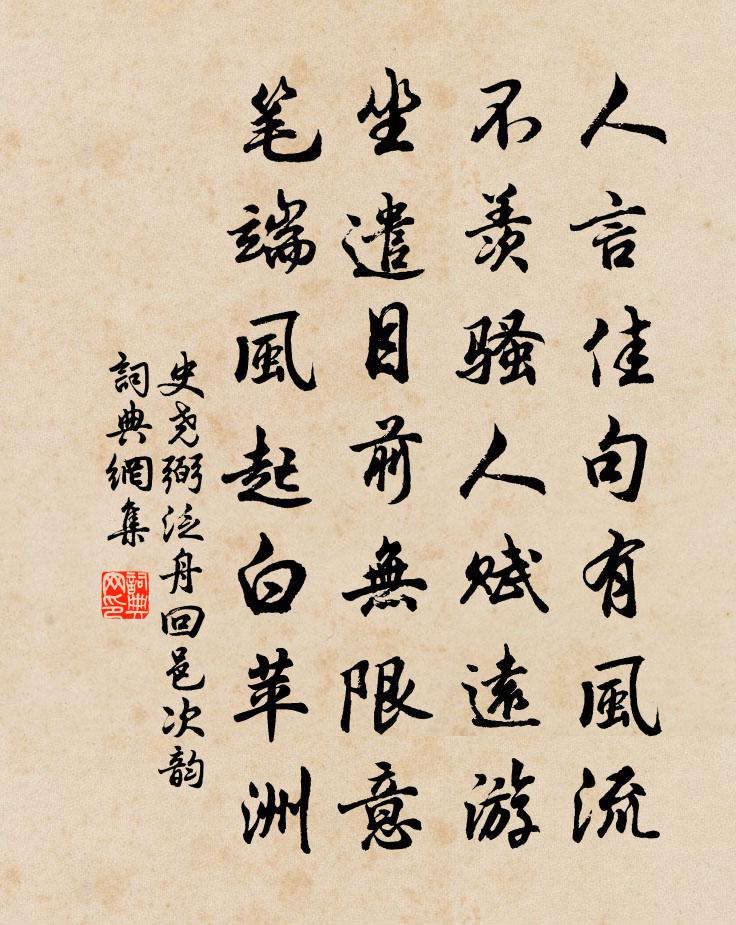 人言佳句有風流
不羡骚人赋遠游
坐遣目前無限意
笔端風起白苹洲
史尧弼泛舟回邑次韵
詞典網集
詞典网印